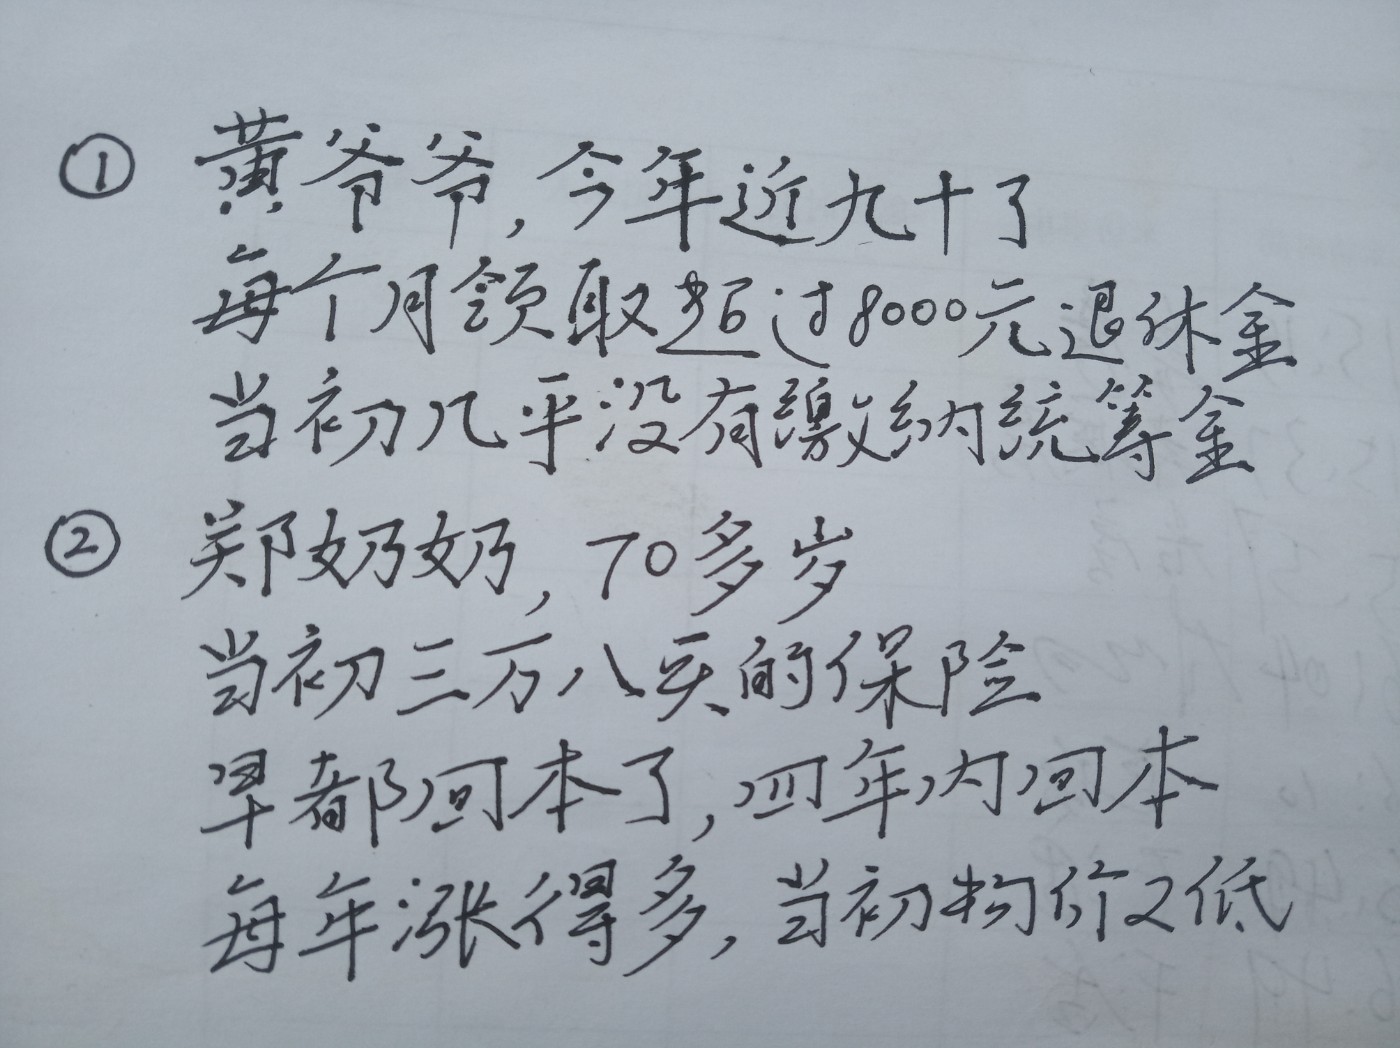 ① 黄爷爷,今年近九十了
每个月领取超过8000元退休金
当初几乎没有缴纳统筹金
② 郑奶奶,70多岁
当初三万八买的保险
早都回本了,四年内回本
每年涨得多,当初物价又低